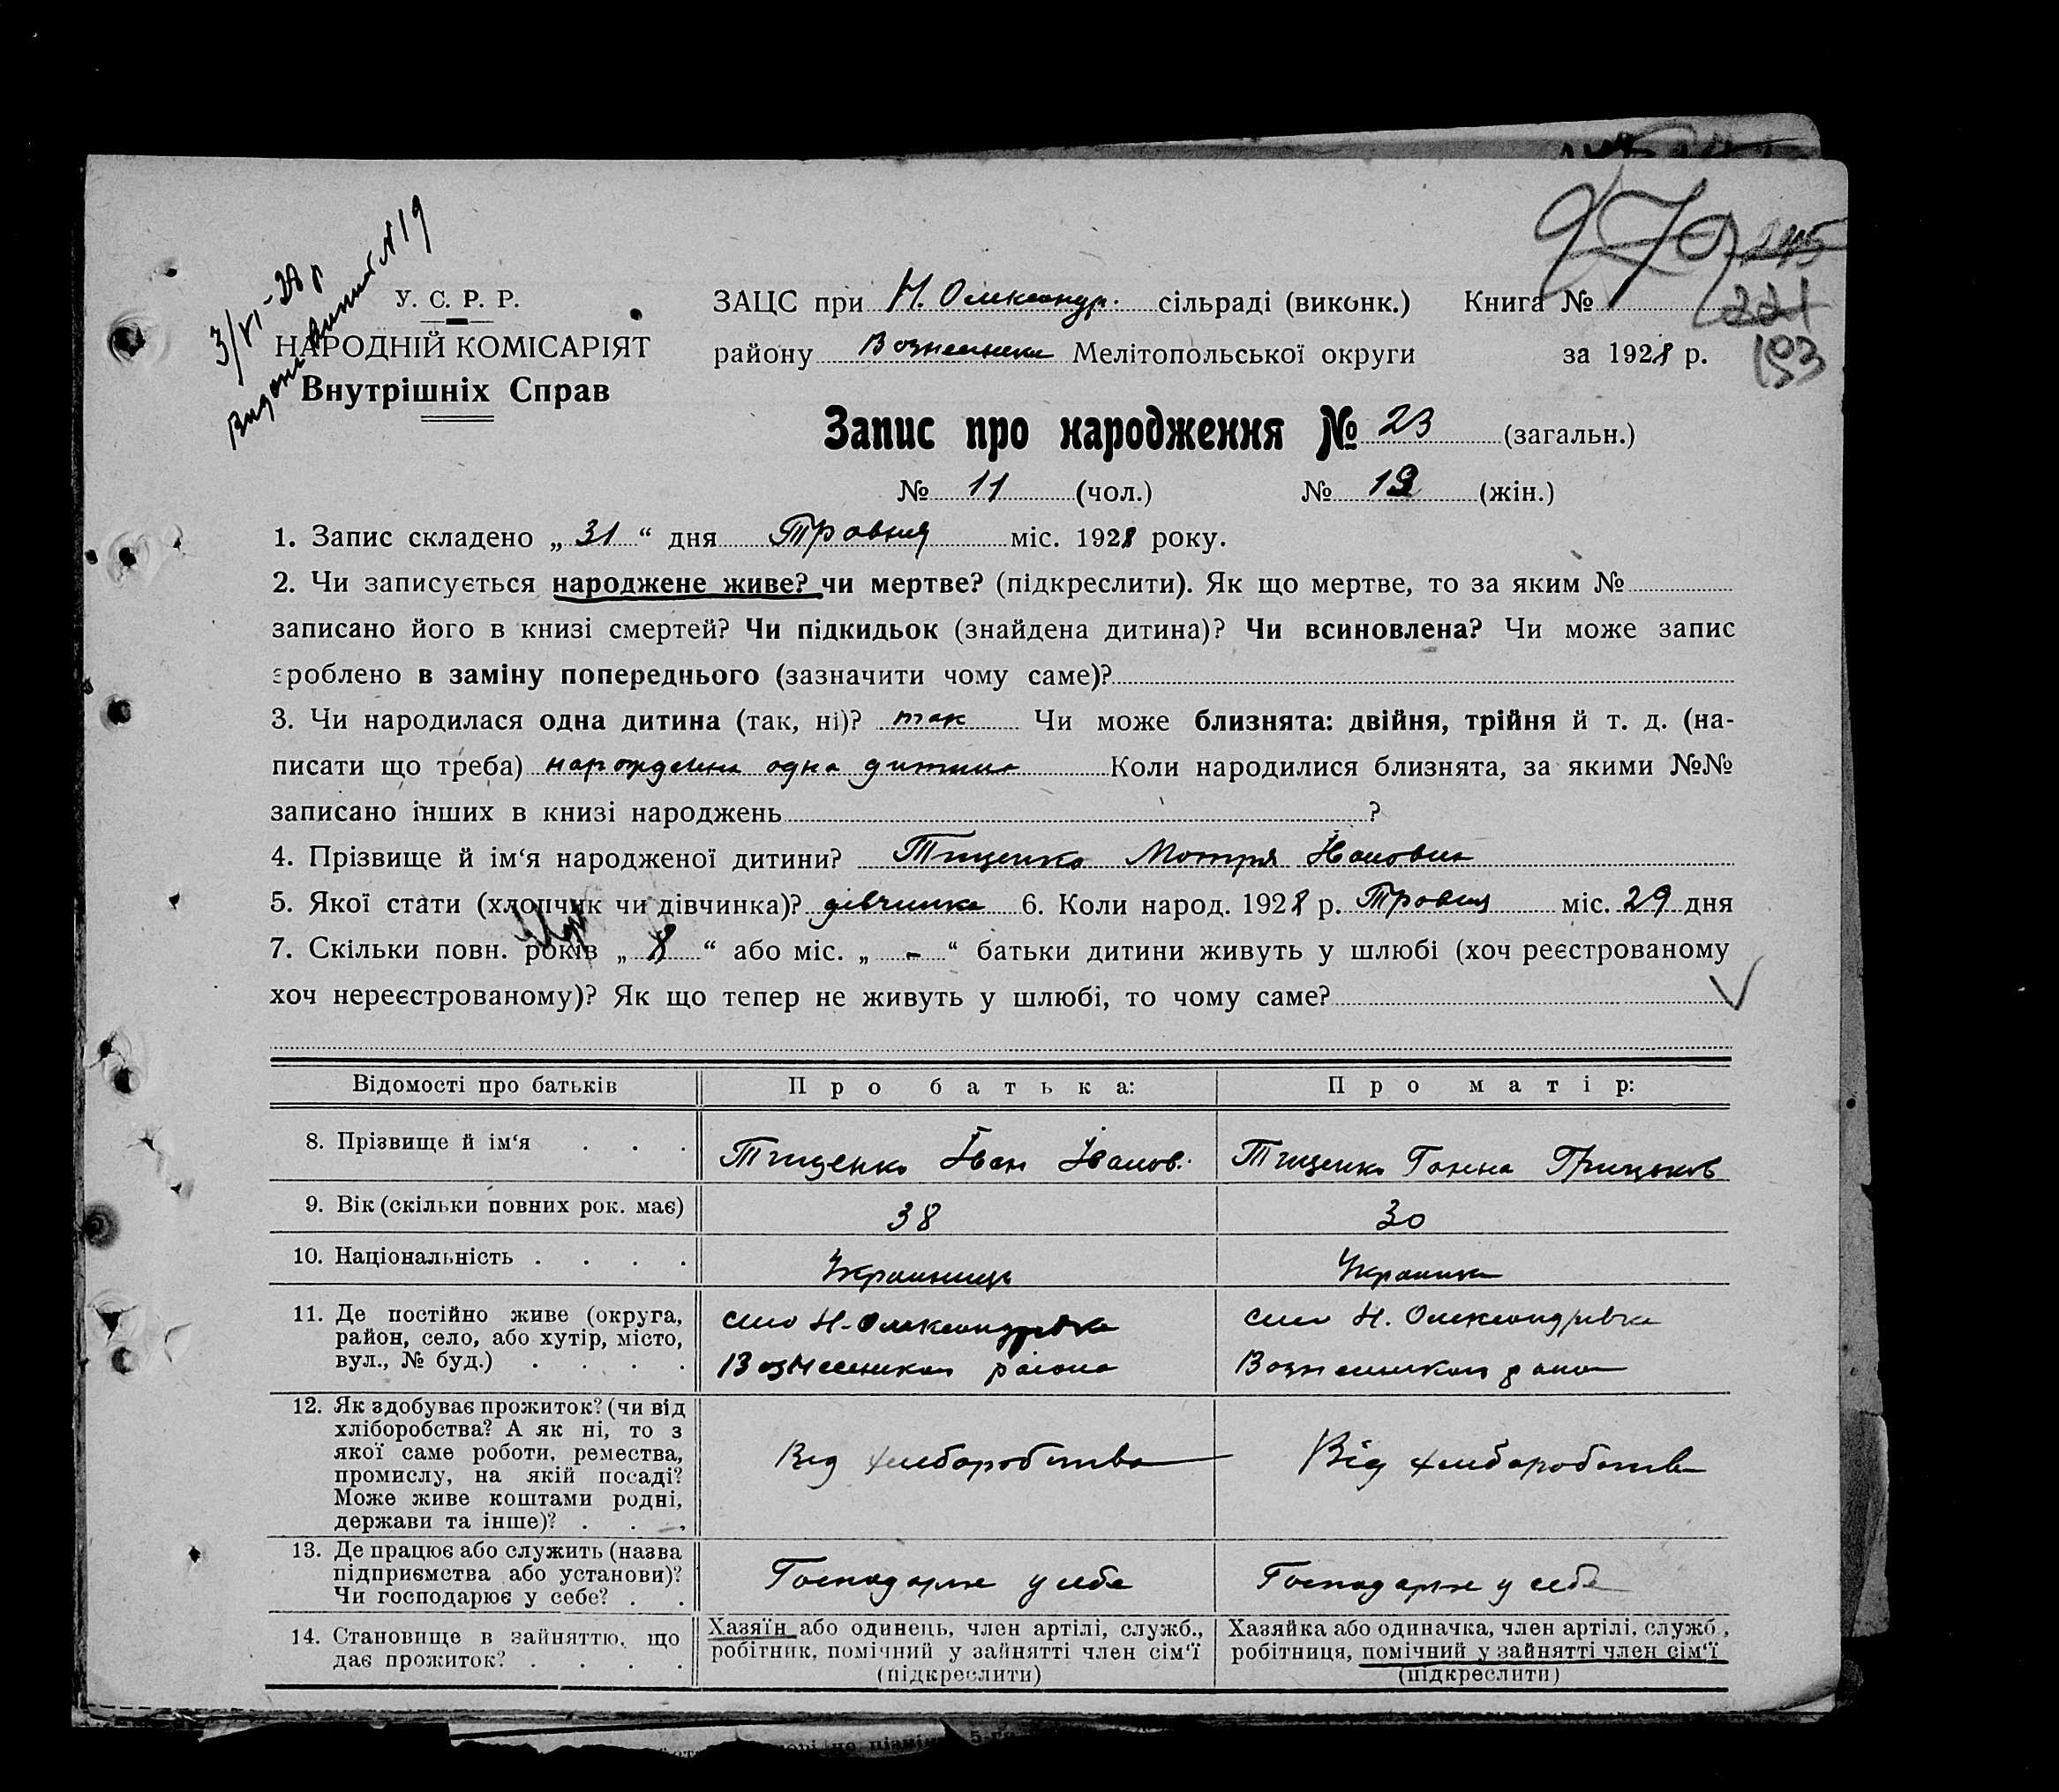 3/VI-28 р
Видано витяг № 19
У. С. Р. Р.
НАРОДНІЙ КОМІСАРІЯТ
Внутрішніх Справ
970
221
193
ЗАЦС при Н. Олександр. сільраді (виконк.) Книга №
району Вознесенськ Мелітопольської округи за 1928 р.
Запис про народження № 23 (загальн.)
№ 11 (чол.) № 12 (жін.)
1. Запис складено „ 31 “ дня Травня міс. 1928 року.
2. Чи записується народжене живе? чи мертве? (підкреслити). Як що мертве, то за яким №
записано його в книзі смертей? Чи підкидьок (знайдена дитина)? Чи всиновлена? Чи може запис
зроблено в заміну попереднього (зазначити чому саме)?
3. Чи народилася одна дитина (так, ні)? так Чи може близнята: двійня, трійня й т. д. (на-
писати що треба) народжена одна дитина Коли народилися близнята, за якими №№
записано інших в книзі народжень ?
4. Прізвище й ім‘я народженої дитини? Тищенко Мотря Івановна
5. Якої стати (хлопчик чи дівчинка)? дівчинка 6. Коли народ. 1928 р. Травня міс. 29 дня
7. Скільки повн. років „ 8 “ або міс. „ - “ батьки дитини живуть у шлюбі (хоч реєстрованому
хоч нереєстрованому)? Як що тепер не живуть у шлюбі, то чому саме?
Відомості про батьків Про батька: Про матір:
8. Прізвище й ім‘я . . . Тищенко Іван Іванов. Тищенко Ганна Грицьков
9. Вік (скільки повних рок. має) 38 30
10. Національність . . . . Украинець Украинка
11. Де постійно живе (округа,
район, село, або хутір, місто,
вул., № буд.) . . . .
село Н-Олександрівка
Вознесенськом району
село Н. Олександрівка
Вознесенськом
12. Як здобуває прожиток? (чи від
хліборобства? А як ні, то з
якої саме роботи, ремества,
промислу, на якій посаді?
Може живе коштами родні,
держави та інше)? . . .
Від хлеборобства
Від хлеборобства
13. Де працює або служить (назва
підприємства або установи)?
Чи господарює у себе? . .
Господарює у себе
Господарює у себе
14. Становище в зайняттю, що
дає прожиток? . . . .
Хазяїн або одинець, член артілі, служб.,
робітник, помічний у зайнятті член сім‘ї
(підкреслити)
Хазяйка або одиначка, член артілі, служб.,
робітниця, помічний у зайнятті член сім‘ї
(підкреслити)